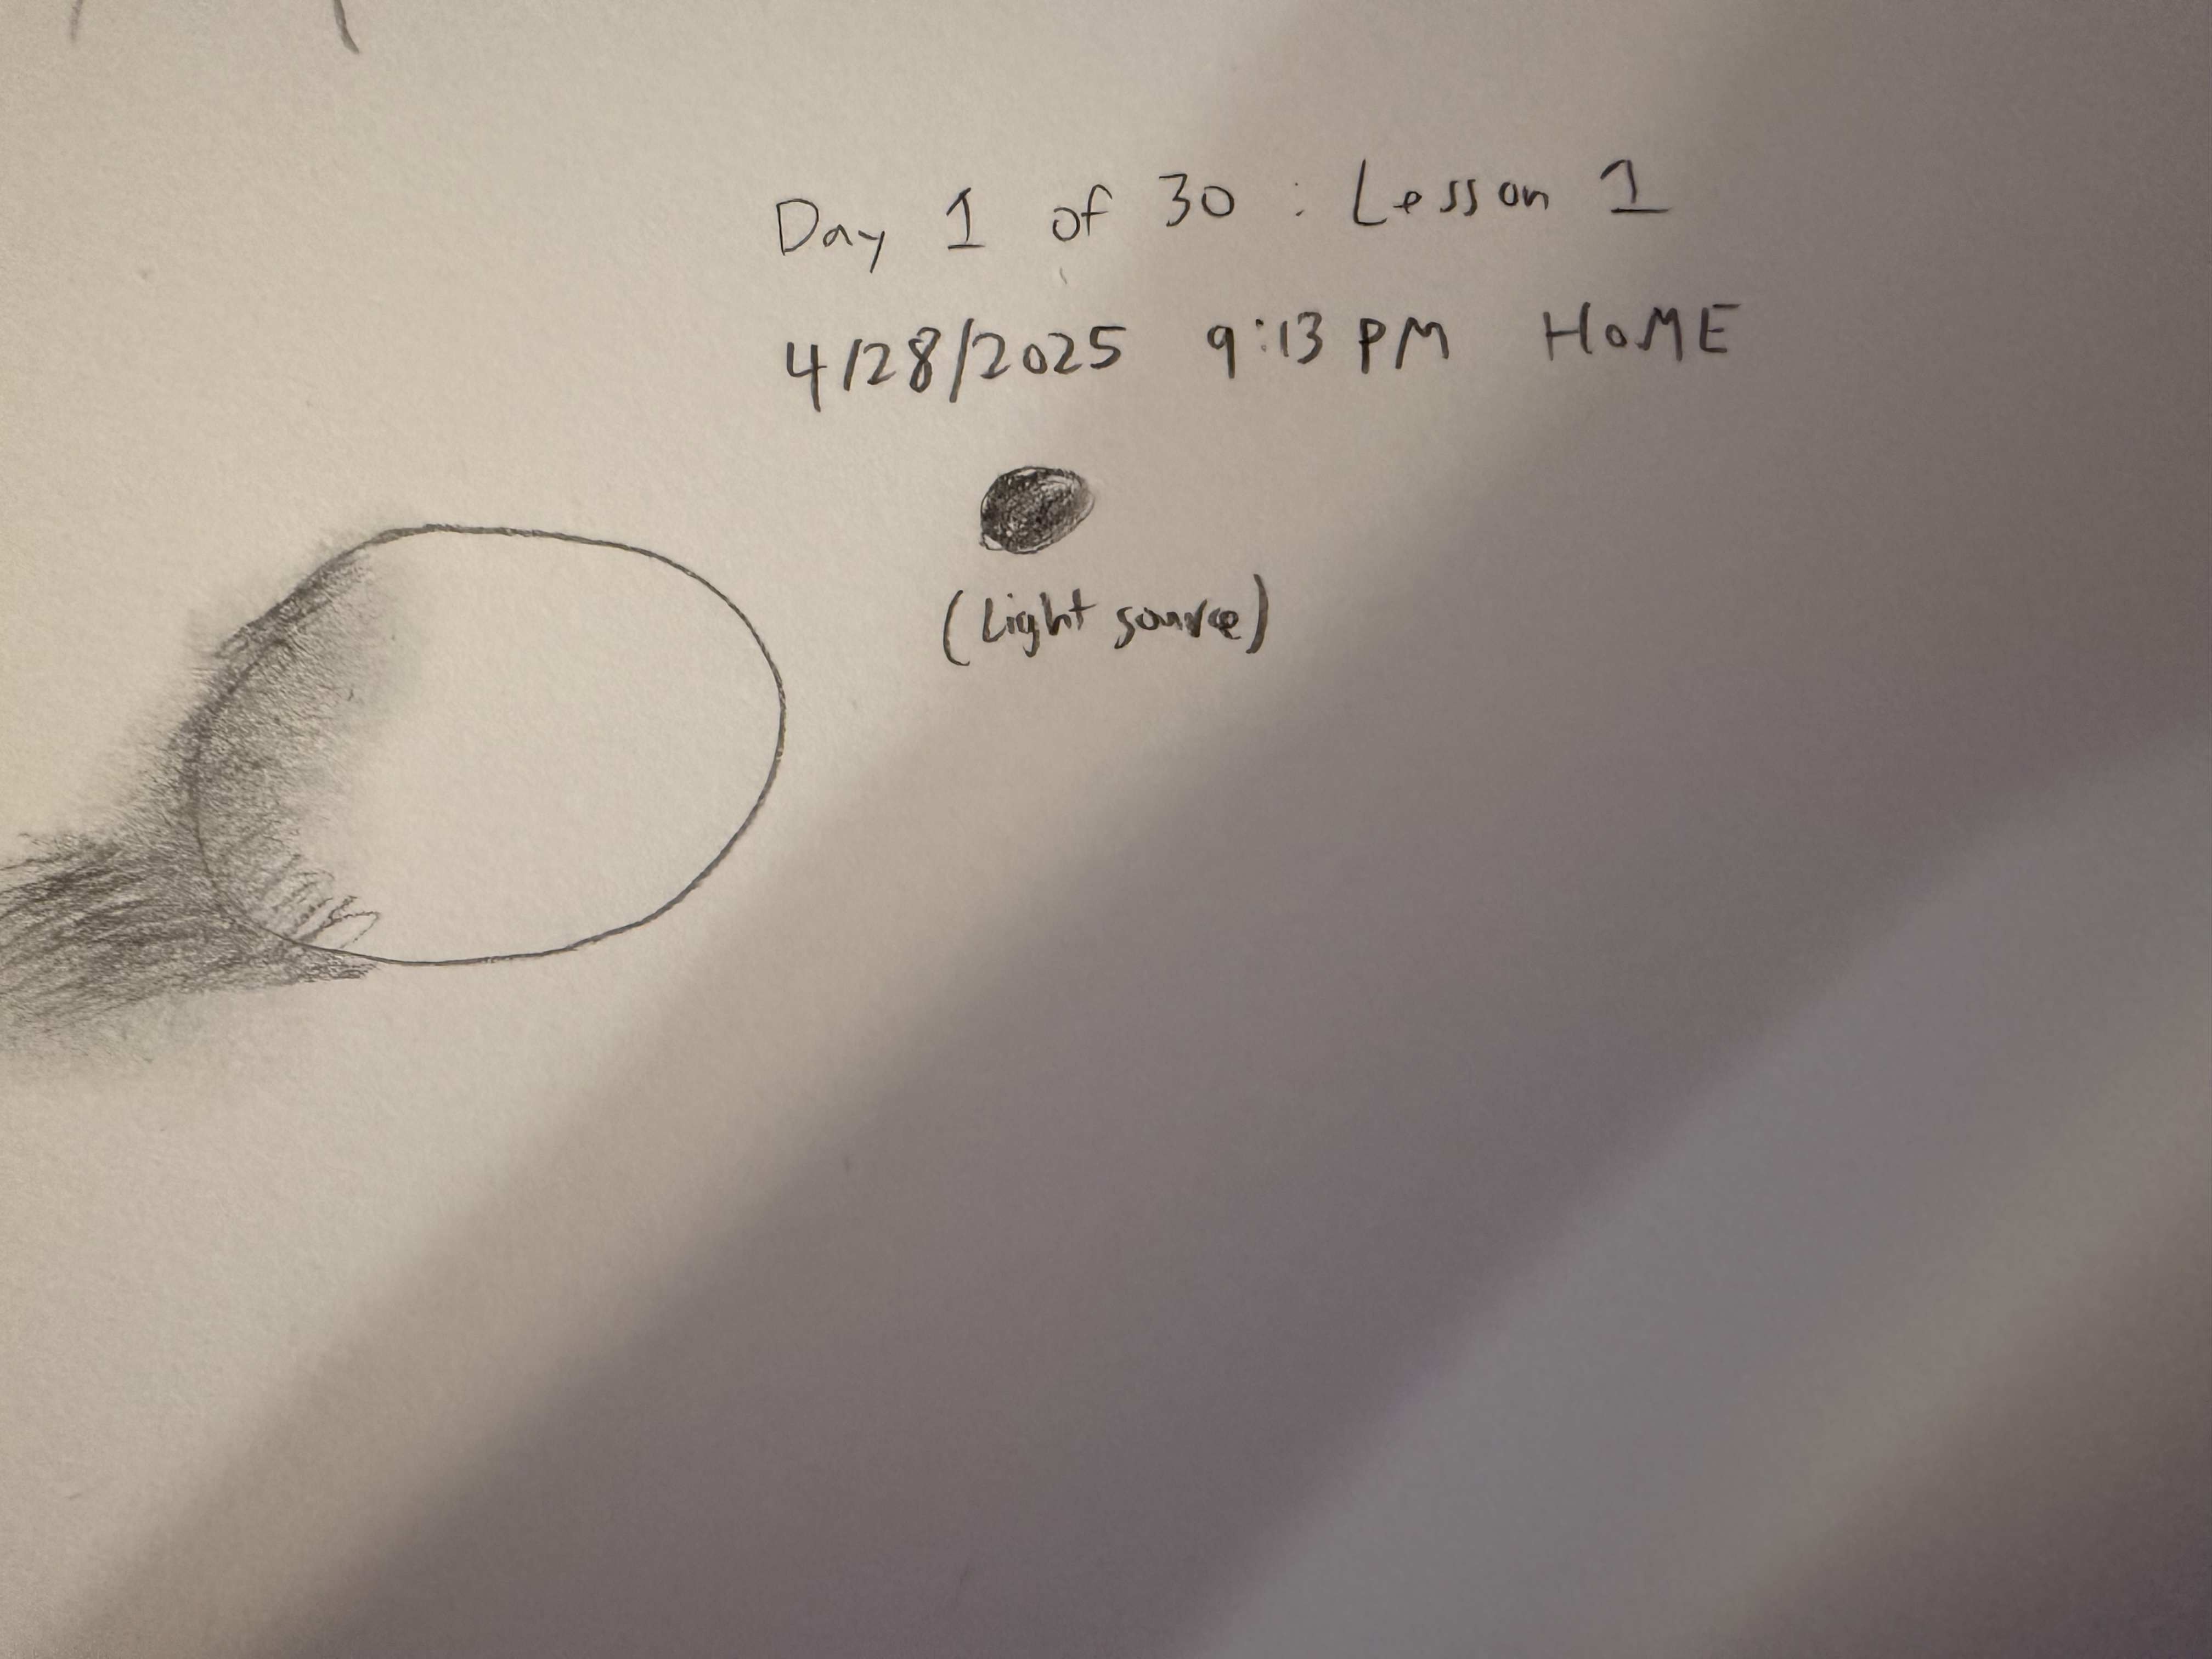 Day 1 of 30 : Lesson 1
4/28/2025 9:13 PM HOME
(Light source)